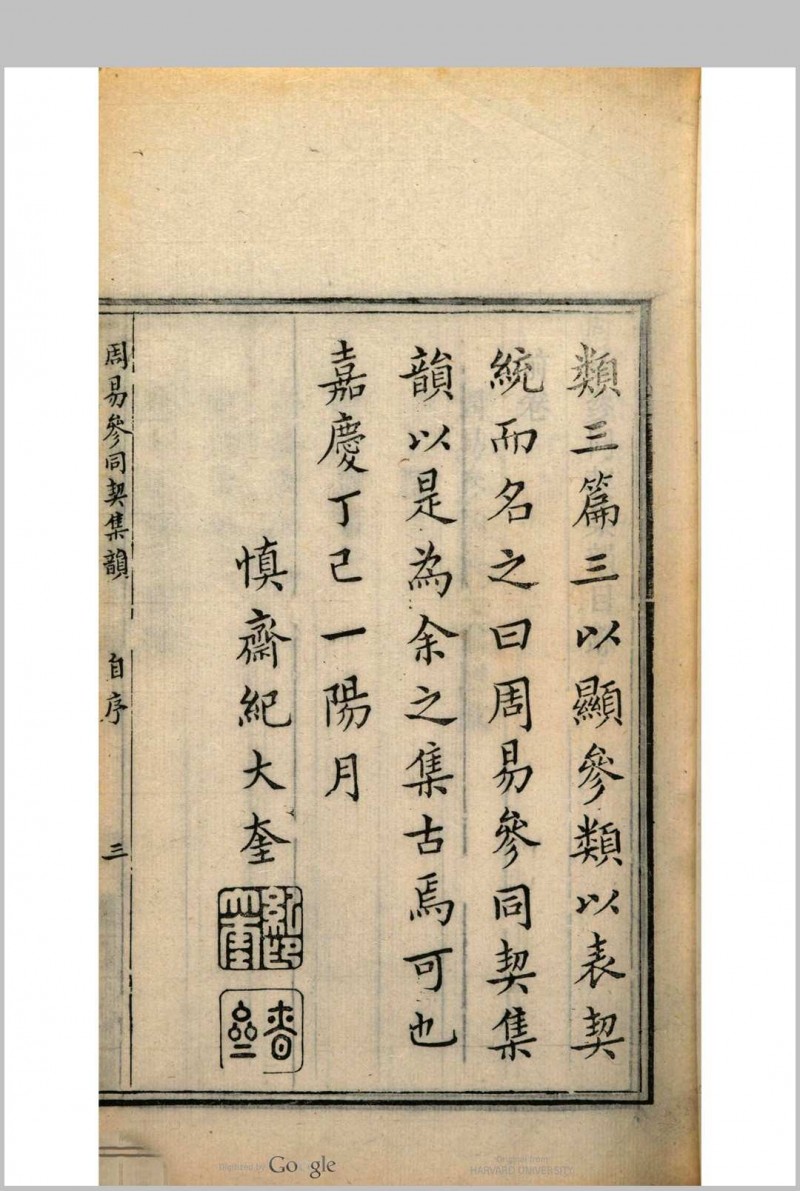 類三篇三以顯參類以表契
統而名之曰周易參同契集
韻以是為余之集古焉可也
嘉慶丁巳一陽月
慎齋紀大奎
周易參同契集韻 自序 三
Google
Original from
HARVARD UNIVERSITY